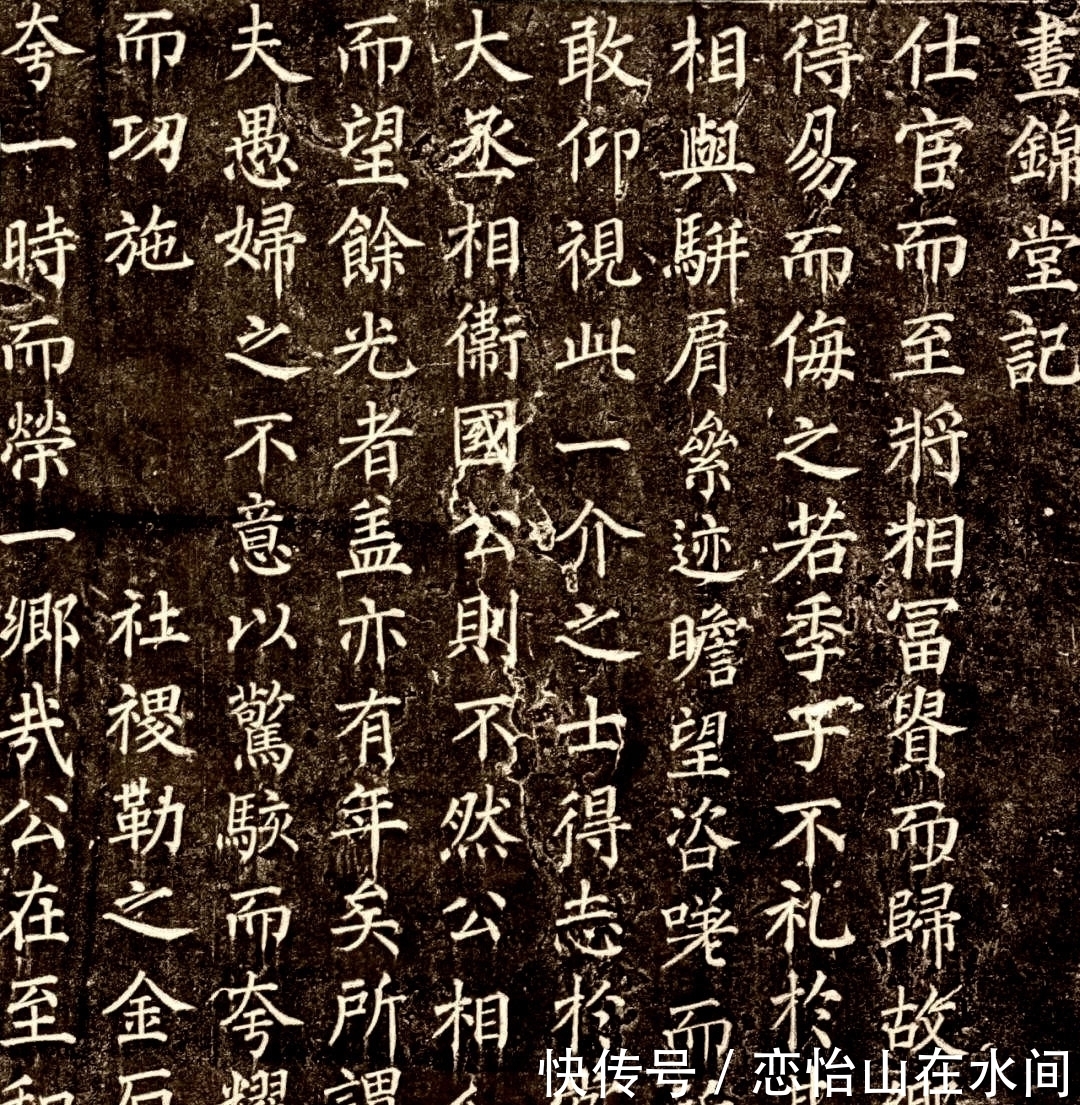 晝錦堂記
仕宦而至將相冨貴而歸故
得易而侮之若季子不礼於
相與駢肩絫迹瞻望咨嗟而
敢仰視此一介之士得志於
大丞相衛國公則不然公相
而望餘光者盖亦有年矣所謂
夫愚婦之不意以驚駭而夸耀
而功施 社稷勒之金石
夸一時而榮一鄉哉公在至和
快传号 / 恋怡山在水间